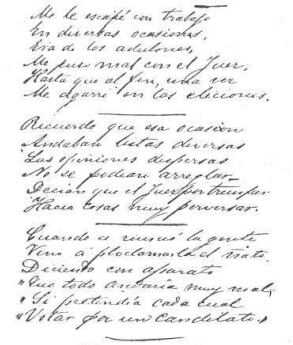 Me le escapé con trabajo
En diversas ocasiones,
Era de los adulones,
Me puse mal con el Juez,
Hasta que al fin, una vez
Me agarró en las eleciones.
Recuerdo que esa ocasion
Andaban listas diversas
Las opiniones dispersas
No se podian arreglar
Decian que el Juez por triunfar
Hacia cosas muy perversas.
Cuando se riunió la gente
Vino á ploclamarla el ñato.
Diciendo con aparato
"Que todo andaria muy mal,
"Si pretendia cada cual
"Votar por un candilato."